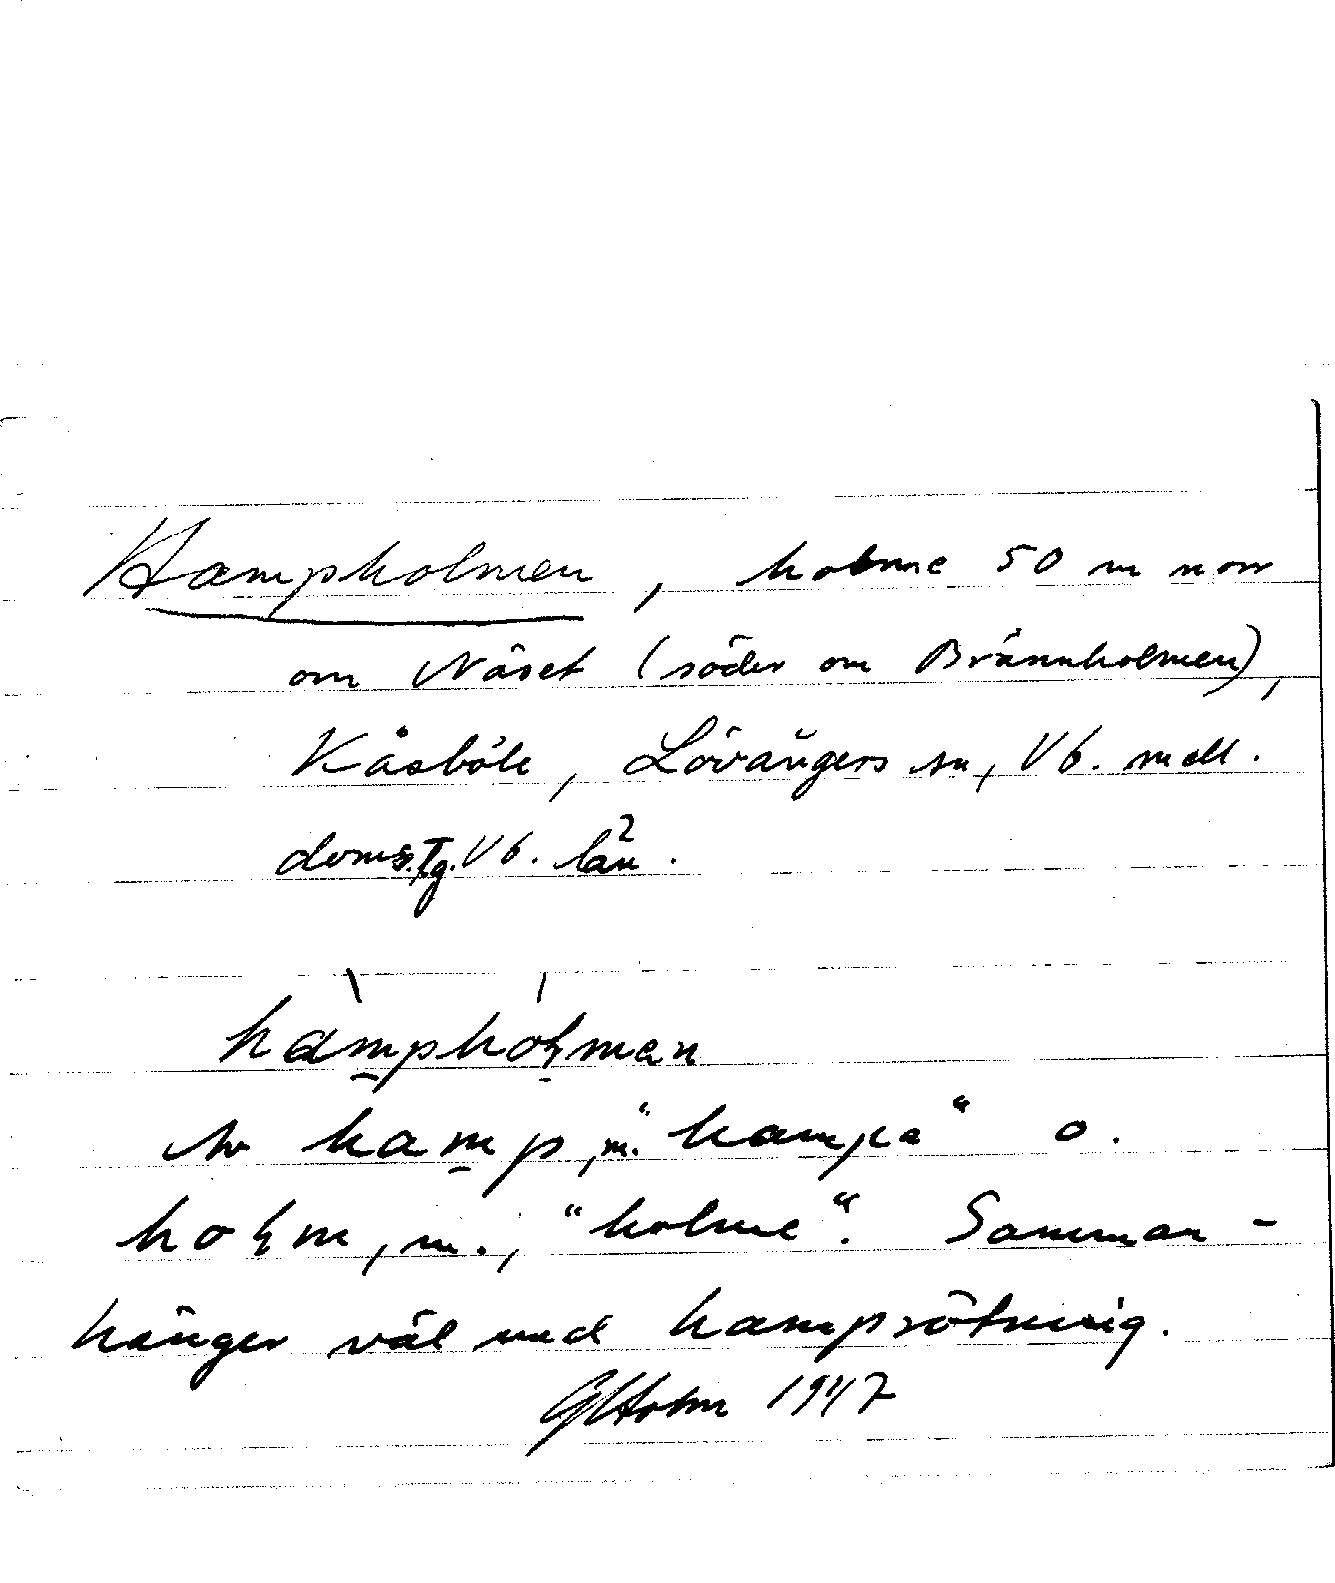 Hampholmen, holme 50 m norr
om Näset (söder om Brännholmen),
Kåsböle, Lövångers sn, Vb. mell.
doms. Tg. Vb. län.
hampholman
Av hamp, m. "hampa" o.
holm, m., "holme". Samman-
hänger väl med hamprötning.
G Holm 1947